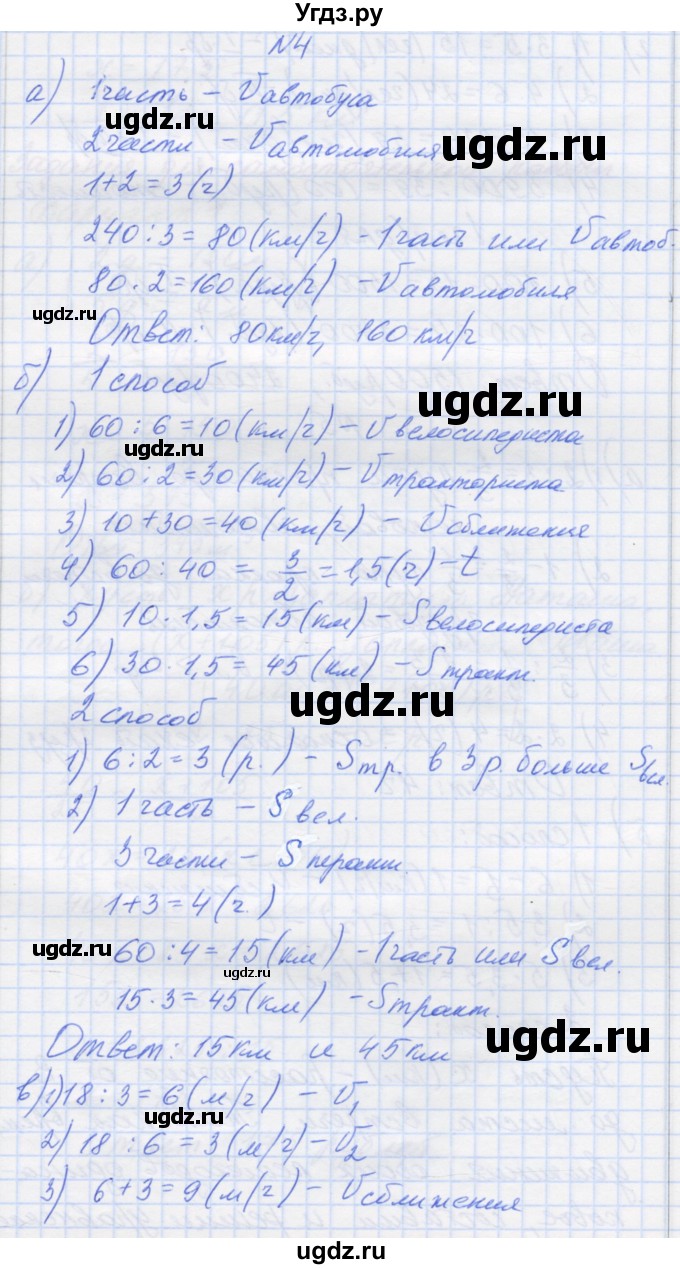 Угдз.ру
N4
а) 1 часть – Vавтобуса
ugdz.ru
2 части – Vавтомобиля
ugdz.ru
1+2=3(ч)
240:3=80(км/ч) - 1 часть или Vавтоб.
80·2=160(км/ч) - Vавтомобиля
ugdz.ru
Ответ: 80км/ч, 160км/ч
б) 1 способ
ugdz.ru
1) 60:6=10(км/ч) – Vвелосипедиста
ugdz.ru
2) 60:2=30(км/ч) – Vтракториста
3) 10+30=40(км/ч) – Vсближения
4) 60:40=3/2=1,5(ч) – t
5) 10·1,5=15(км) – Sвелосипедиста
6) 30·1,5=45(км) – Sтракт.
ugdz.ru
2 способ
1) 6:2=3(р.) – Sтр. в 3 р. больше Sвел.
2) 1 часть – Sвел.
3 части – Sтракт.
1+3=4(ч.)
ugdz.ru
60:4=15(км) - 1 часть или Sвел.
ugdz.ru
15·3=45(км) - Sтракт.
ugdz.ru
Ответ: 15км и 45км
в) 1) 18:3=6(м/ч) – V1
ugdz.ru
2) 18:6=3(м/ч) – V2
3) 6+3=9(м/ч) – Vсближения
ugdz.ru